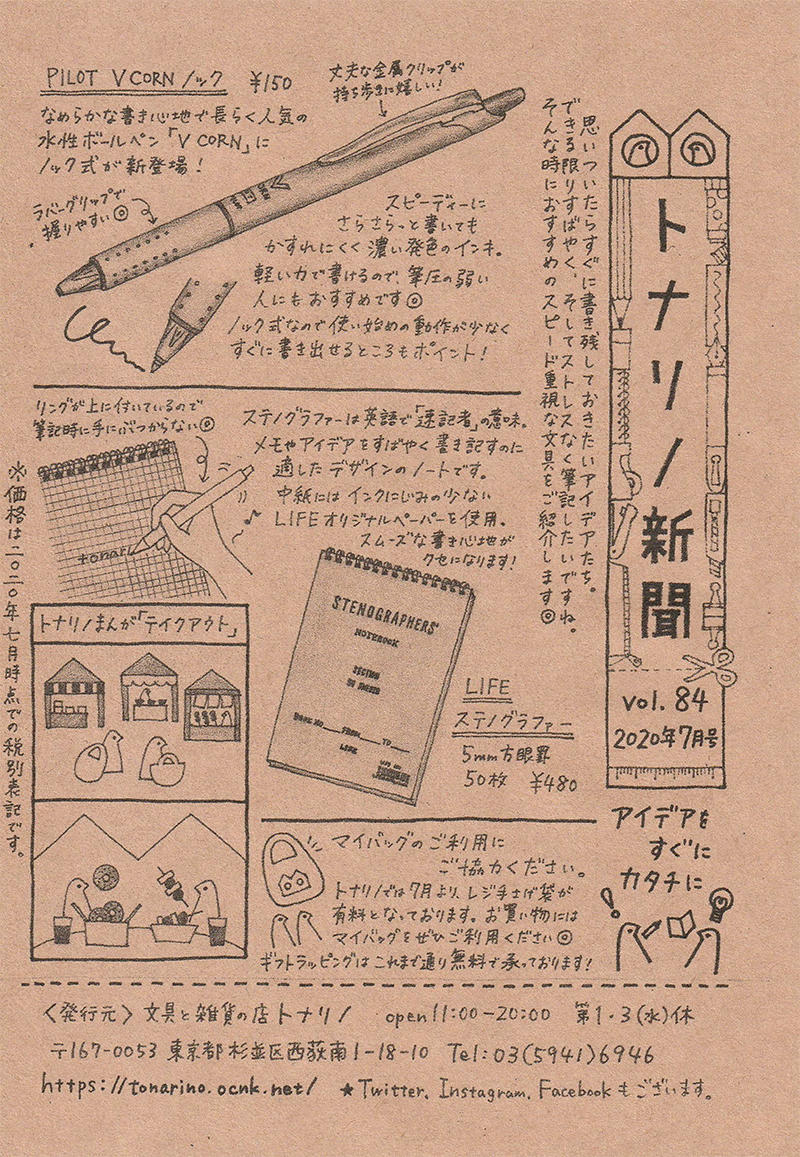 トナリノ新聞
vol. 84
2020年7月号
アイデアを
すぐに
カタチに
思いついたらすぐに書き残しておきたいアイデアたち。
できる限りすばやく、そしてストレスなく筆記したいですね。
そんな時におすすめのスピード重視な文具をご紹介します◎
PILOT V CORN ノック ¥150
丈夫な金属クリップが
持ち歩きに嬉しい!
なめらかな書き心地で長らく人気の
水性ボールペン「V CORN」に
ノック式が新登場!
ラバーグリップで
握りやすい◎
スピーディーに
さらさらっと書いても
かすれにくく濃い発色のインキ。
軽い力で書けるので、筆圧の弱い
人にもおすすめです◎
ノック式なので使い始めの動作が少なく
すぐに書き出せるところもポイント!
リングが上に付いているので
筆記時に手にぶつからない◎
tonari
ステノグラファーは英語で「速記者」の意味。
メモやアイデアをすばやく書き記すのに
適したデザインのノートです。
中紙にはインクにじみの少ない
LIFEオリジナルペーパーを使用。
スムーズな書き心地が
クセになります!
STENOGRAPHERS'
NOTEBOOK
SECTION
BOOK NO FROM TO
LIFE
LIFE
ステノグラファー
5mm方眼罫
50枚 ¥480
トナリノまんが「テイクアウト」
※価格は二〇二〇年七月時点での税別表記です。
マイバッグのご利用に
ご協力ください。
トナリノでは7月より、レジ手さげ袋が
有料となっております。お買い物には
マイバッグをぜひご利用ください◎
ギフトラッピングはこれまで通り無料で承っております!
〈発行元〉文具と雑貨の店トナリノ open11:00-20:00 第1・3(水)休
〒167-0053 東京都杉並区西荻南1-18-10 Tel:03(5941)6946
https://tonarino.ocnk.net/ ★Twitter、Instagram、Facebookもございます。